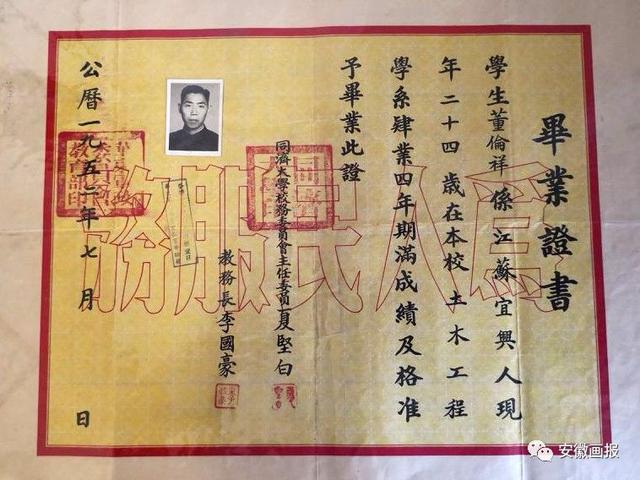 畢業證書
學生董倫祥係江蘇宜興人現
年二十四歲在本校土木工程
學系肄業四年期滿成績及格准
予畢業此證
同濟大學校務委員會主任委員夏堅白
教務長李國豪
公曆一九五二年七月 日
為人民服務
安徽画报